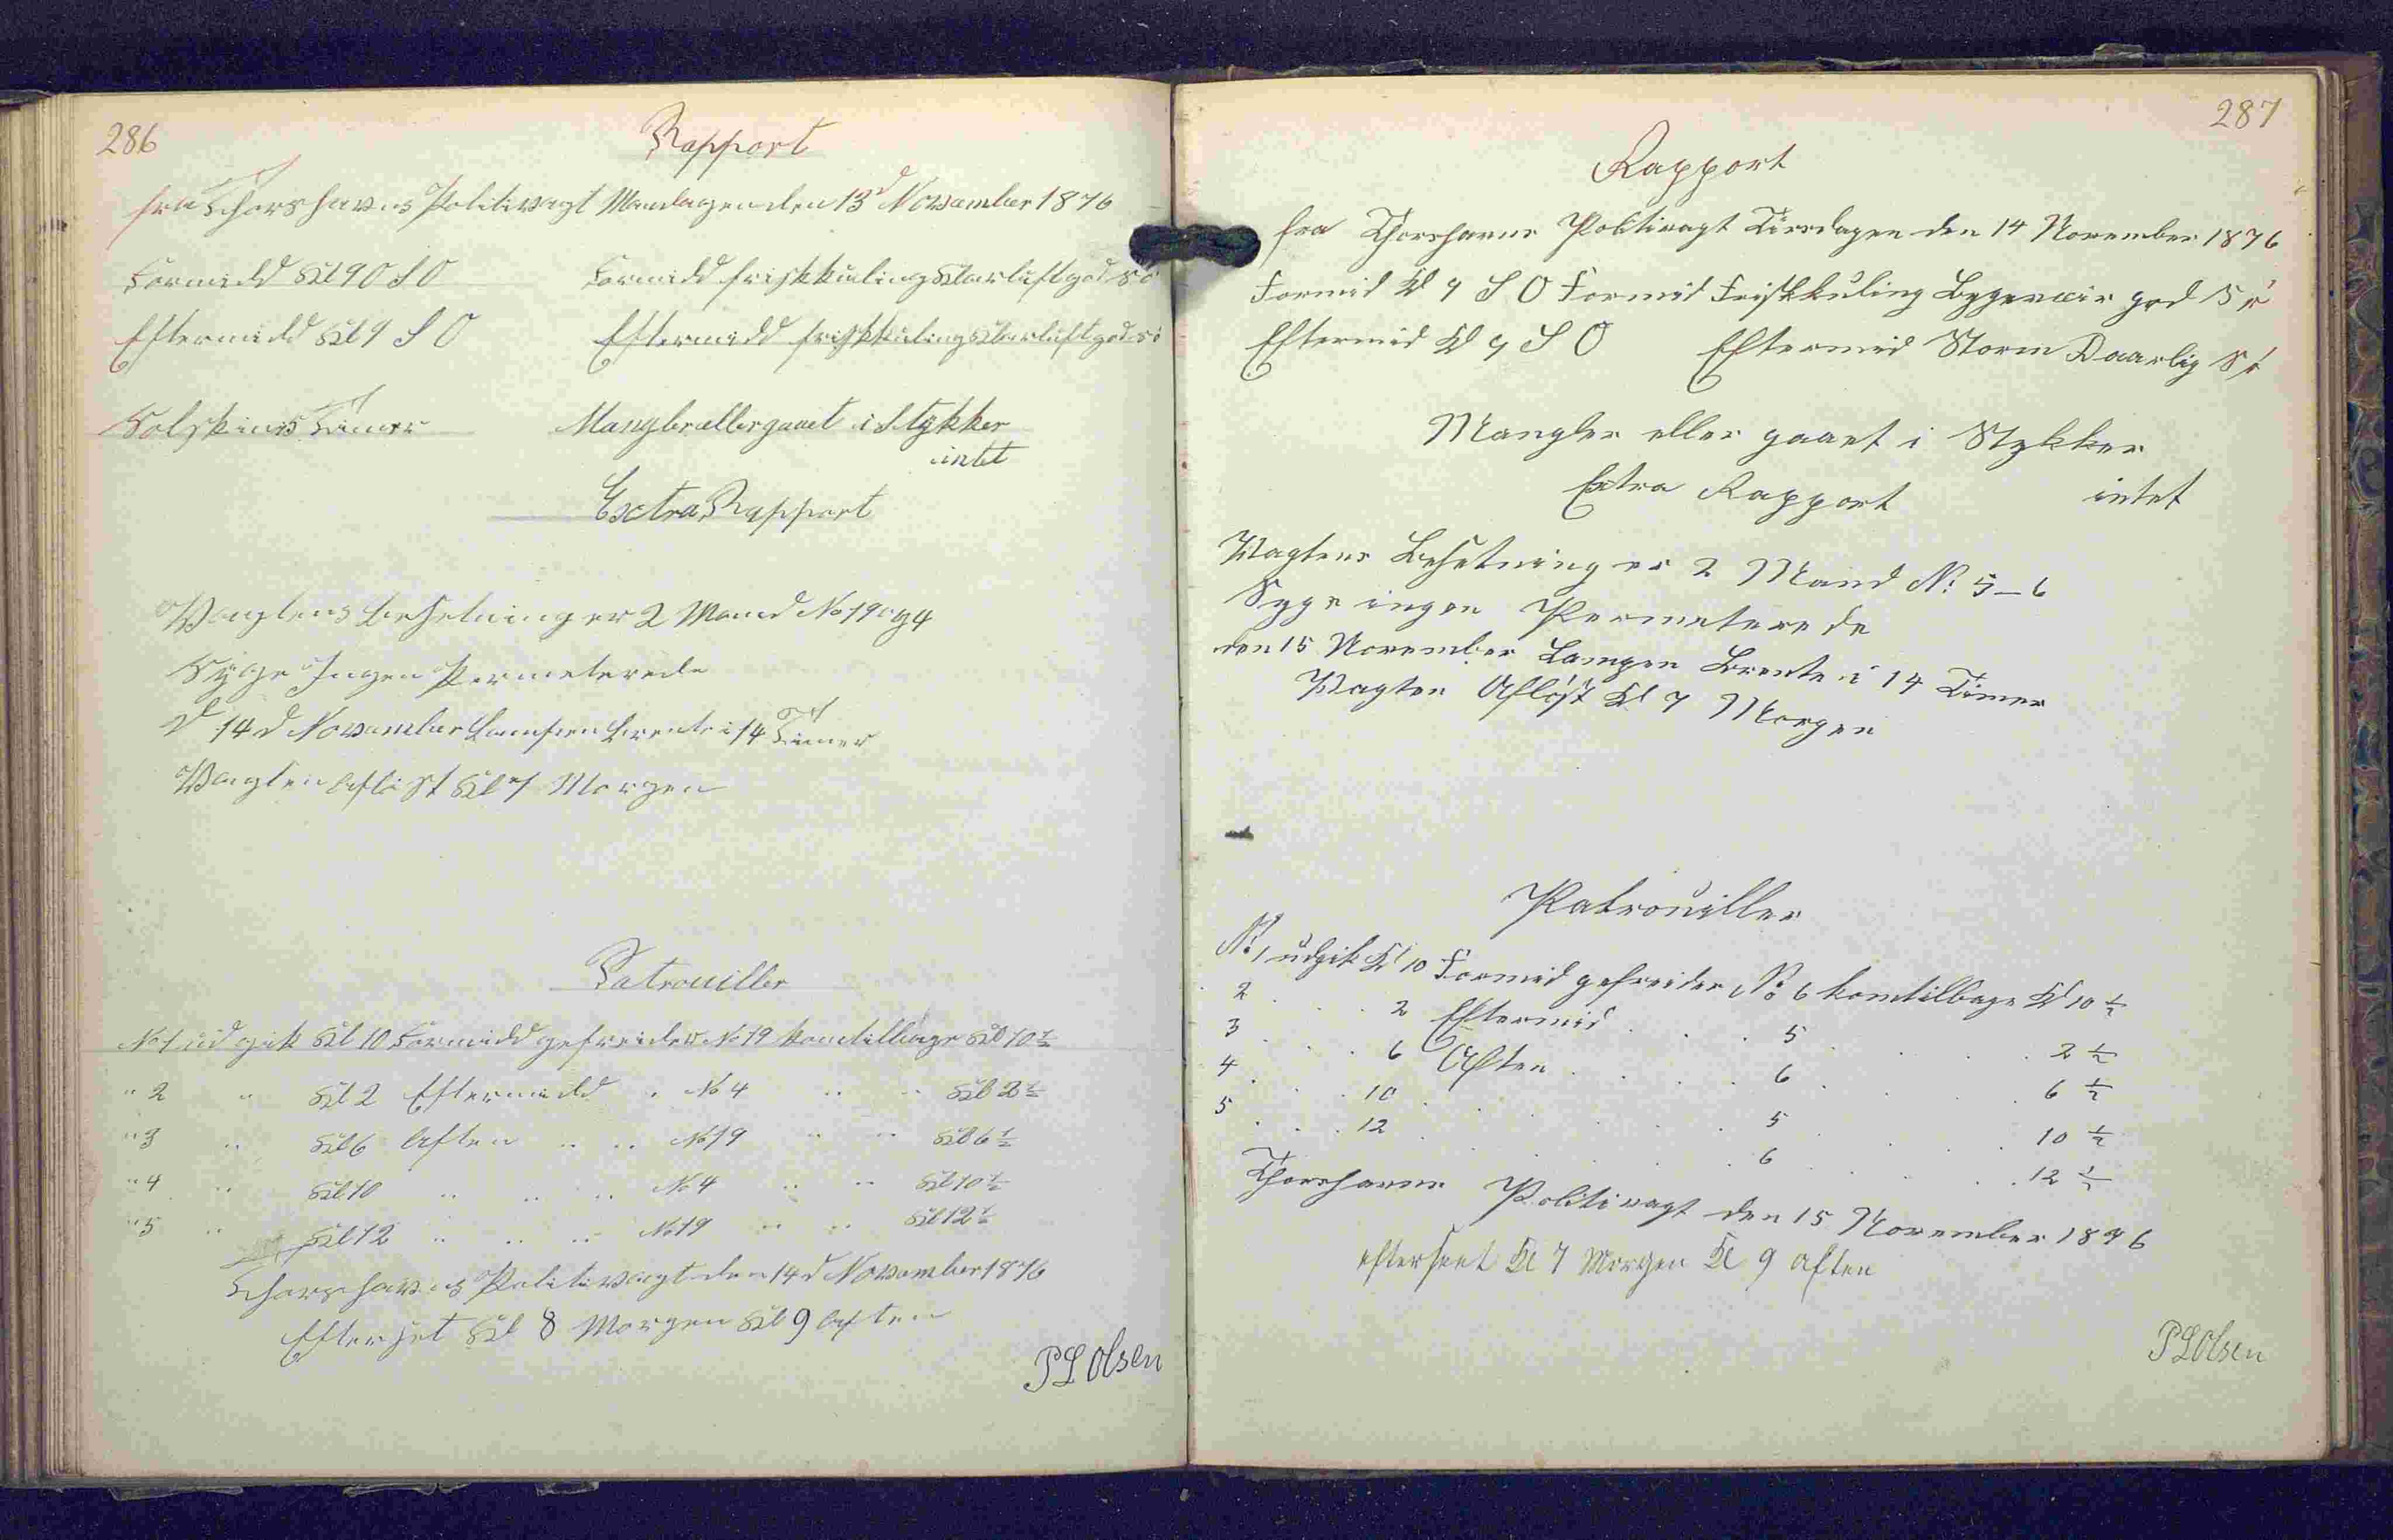 286
Rapport
fra Thorshavns Politivagt Mandagen den 13d November 1876
Formidd Kl 9 O S O Formidd friskkuling Klarluft god Sö
Eftermidd Kl 9 S O Eftermidd friskkuling Klarluft god Sö
Solskins Timer Mangler eller gaaet i Stykker
intet
Extra Rapport
Vagtens besetning er 2 Mand No 19 og 4
Syge Ingen Permeterede
d 14d November Lampen brente i 14 Timer
Vagten Aflöst Kl 7 Morgen
Patrouiller
No 1 udgik Kl 10 Formidd gefreider No 19 kom tilbage Kl 10 1/2
" 2 " Kl 2 Eftermidd " No 4 " " Kl 2 1/2
" 3 " Kl 6 Aften " " No 19 " " Kl 6 1/2
" 4 " Kl 10 " " " No 4 " " Kl 10 1/2
" 5 " Kl 12 " " " No 19 " " Kl 12 1/2
Thorshavns Politivagt den 14d November 1876
Efterset Kl 8 Morgen Kl 9 Aften
P L Olsen
287
Rapport
fra Thorshavns Politivagt Tirsdagen den 14 November 1876
Formid Kl 9 S O Formid Friskkuling Bygevæir god Sö
Eftermid Kl 9 S O Eftermid Storm Daarlig Sö
Mangler eller gaaet i Stykker
Extra Rapport intet
Vagtens Besetning er 2 Mand No 5 – 6
Syge ingen Permeterede
den 15 November Lampen Brente i 14 Timer
Vagten Afløst Kl 7 Morgen
Patrouiller
No 1 udgik Kl 10 Formid gefreider No 6 kom tilbage Kl 10 1/2
2 . . 2 Eftermid . . . 5 . . . . 2 1/2
3 . . . 6 Aften . . . . 6 . . . . 6 1/2
4 . . . 10 . . . . . 5 . . . . 10 1/2
5 . . . 12 . . . . . 6 . . . . 12 1/2
Thorshavns Politivagt den 15 November 1876
efterseet Kl 7 Morgen Kl 9 Aften
P L Olsen